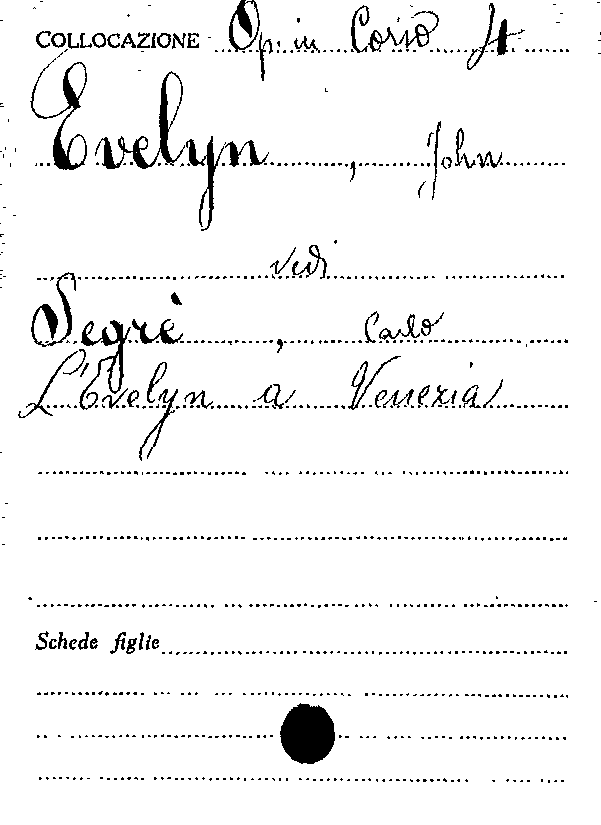 COLLOCAZIONE Op. in Corso 4.
Evelyn, John
vedi
Segrè, Carlo
L'Evelyn a Venezia
Schede figlie